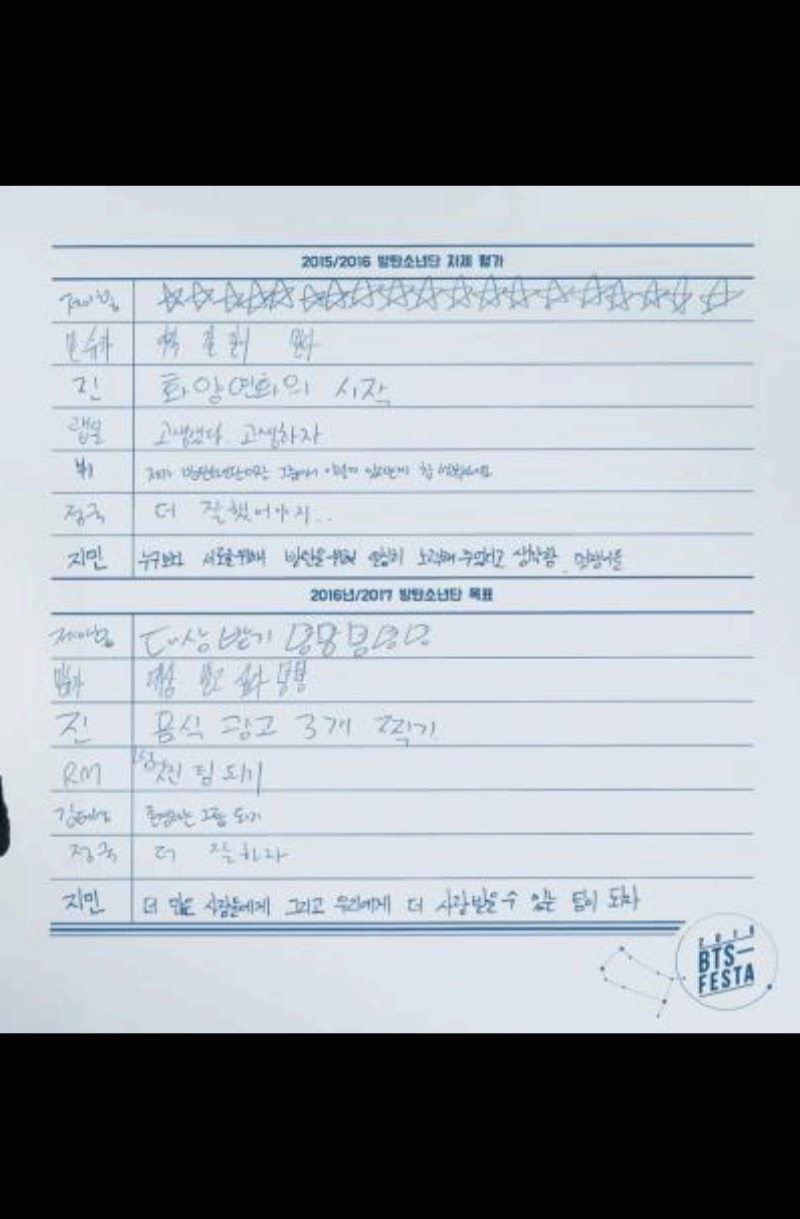 2015/2016 방탄소년단 자체 평가
제이홉 ☆☆☆☆☆☆☆☆☆☆☆☆☆☆☆☆☆☆☆
민슈가
진 화양연화의 시작
랩몬 고생했다. 고생하자
뷔 제가 방탄소년단이란 그룹에서 이렇게 있다는게 참 행복해요
정국 더 잘했어야지..
지민 누구보다 서로를 위해 방탄을 위해 열심히 노력해 주었다고 생각함.
2016년/2017 방탄소년단 목표
제이홉 대상 받기
대상 받고 싶다
진 음식 광고 3개 찍기
RM 멋진 팀 되기
김태형 그룹 되기
정국 더 잘하자
지민 더 많은 사람들에게 그리고 우리에게 더 사랑받을 수 있는 팀이 되자
2016
BTS—
FESTA